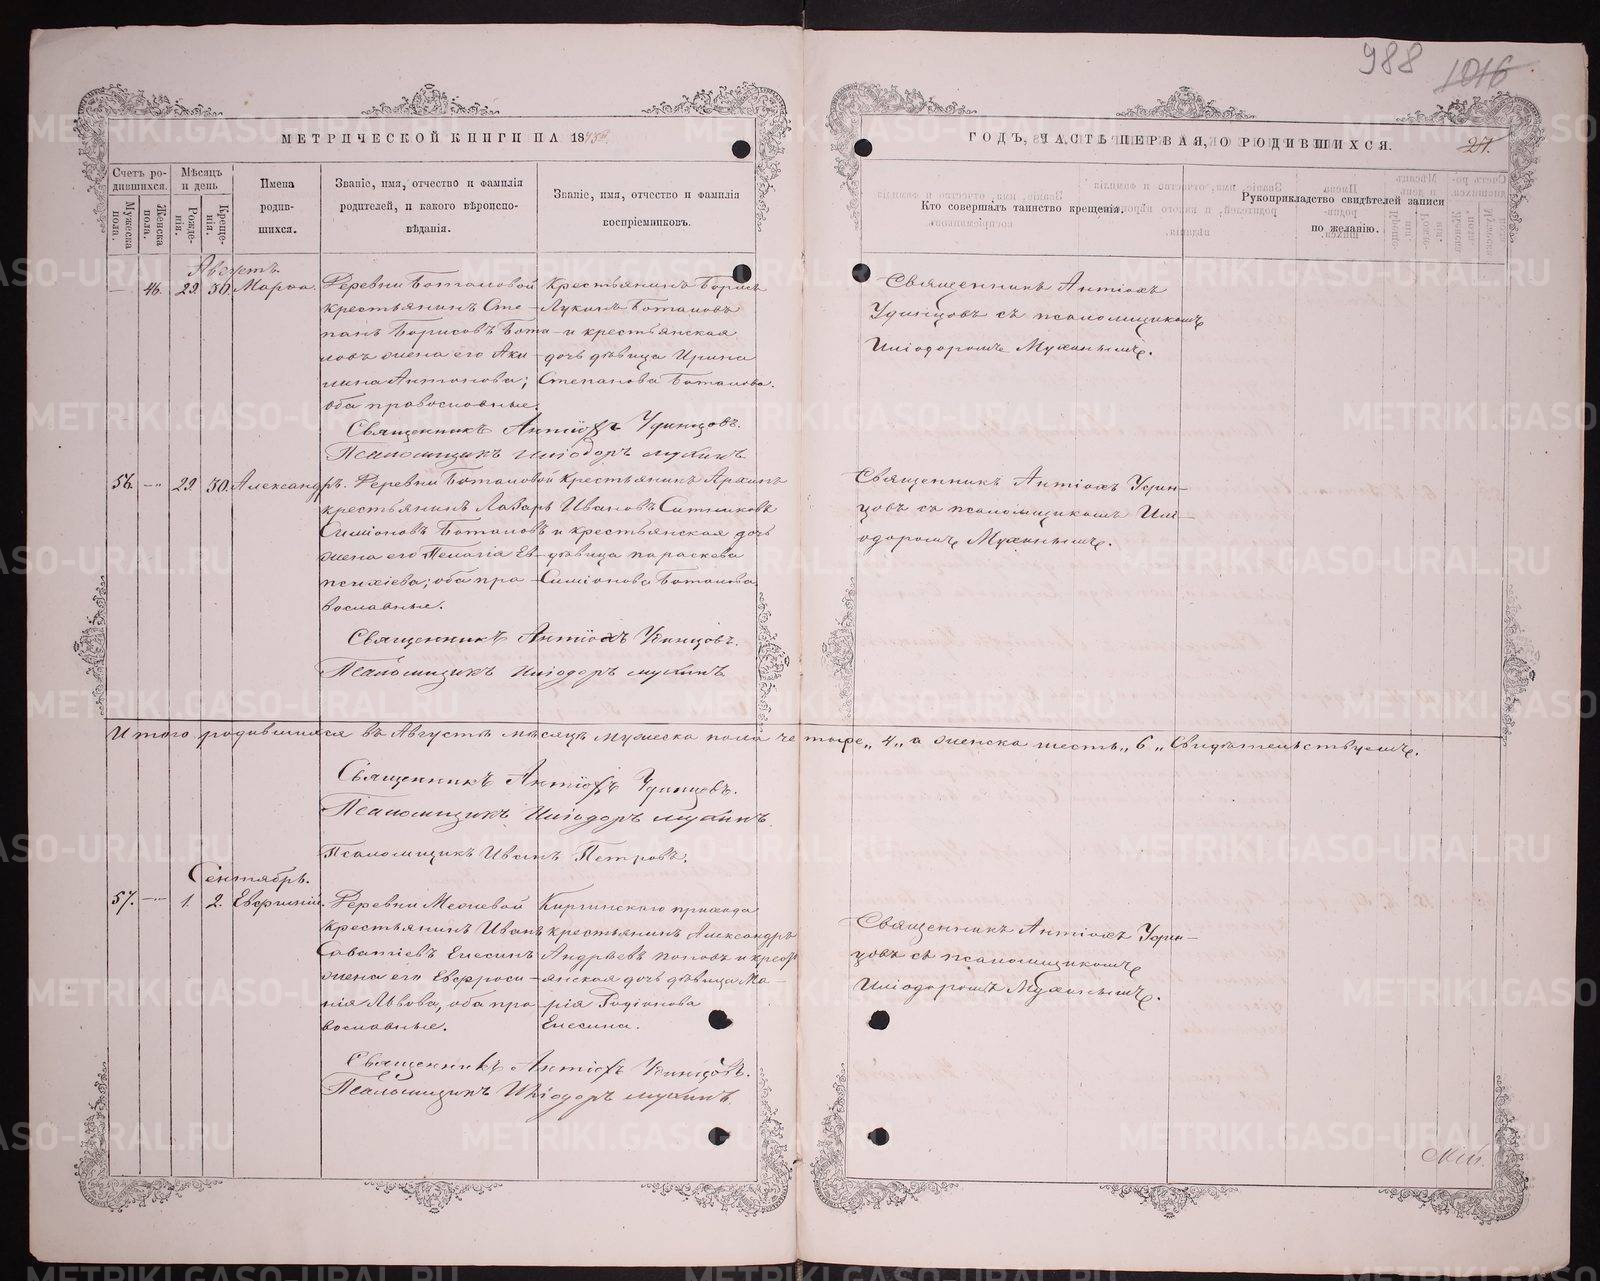 988
1016
МЕТРИЧЕСКОЙ КНИГИ НА 18
ГОДЪ, ЧАСТЬ ПЕРВАЯ, О РОДИВШИХСЯ.
27.
Счетъ родившихся.
Мужеска пола.
Женска пола.
Мѣсяцъ и день
Рожденія.
Крещенія.
Имена родившихся.
Званіе, имя, отчество и фамилія родителей, и какого вѣроисповѣданія.
Званіе, имя, отчество и фамилія воспріемниковъ.
Кто совершалъ таинство крещенія.
Рукоприкладство свидѣтелей записи по желанію.
Августъ.
46. 29. 30. Марѳа.
Деревни Боталовой
крестьянинъ Сте-
панъ Борисовъ Бота-
ловъ жена его Аки-
лина Антонова;
оба православные.
Крестьянинъ Борисъ
Лукинъ Боталовъ
и крестьянская
дочь дѣвица Ирина
Степанова Боталова.
Священникъ Антіохъ
Удинцовъ съ псаломщикомъ
Иліодоромъ Мухинымъ.
Священникъ Антіохъ Удинцовъ.
Псаломщикъ Иліодоръ Мухинъ
56. 29. 30. Александръ.
Деревни Боталовой
крестьянинъ Лазарь
Симіоновъ Боталовъ
жена его Пелагія Ев-
психіева; оба пра-
вославные.
Крестьянинъ Архипъ
Ивановъ Ситниковъ
и крестьянская дочь
дѣвица Параскева
Симіонова Боталова
Священникъ Антіохъ Удин-
цовъ съ псаломщикомъ Илі-
одоромъ Мухинымъ.
Священникъ Антіохъ Удинцовъ.
Псаломщикъ Иліодоръ Мухинъ
Итого родившихся въ Августѣ мѣсяцѣ мужеска пола четыре „4„ а женска шесть „6„ Свидѣтельствуемъ.
Священникъ Антіохъ Удинцовъ.
Псаломщикъ Иліодоръ Мухинъ.
Псаломщикъ Иванъ Петровъ.
Сентябрь.
57. 1. 2. Евфимій.
крестьянинъ Иванъ
Саватіевъ Елесинъ
жена его Евфроси-
нія Львова, оба пра-
вославные.
Киргинскаго прихода
крестьянинъ Александръ
Андреевъ Поповъ и крест
янская дочь дѣвица Ма-
рія Родіонова
Елесина.
Священникъ Антіохъ Удин-
цовъ съ псаломщикомъ
Иліодоромъ Мухинымъ.
Священникъ Антіохъ Удинцовъ.
Псаломщикъ Иліодоръ Мухинъ.
METRIKI.GASO-URAL.RU